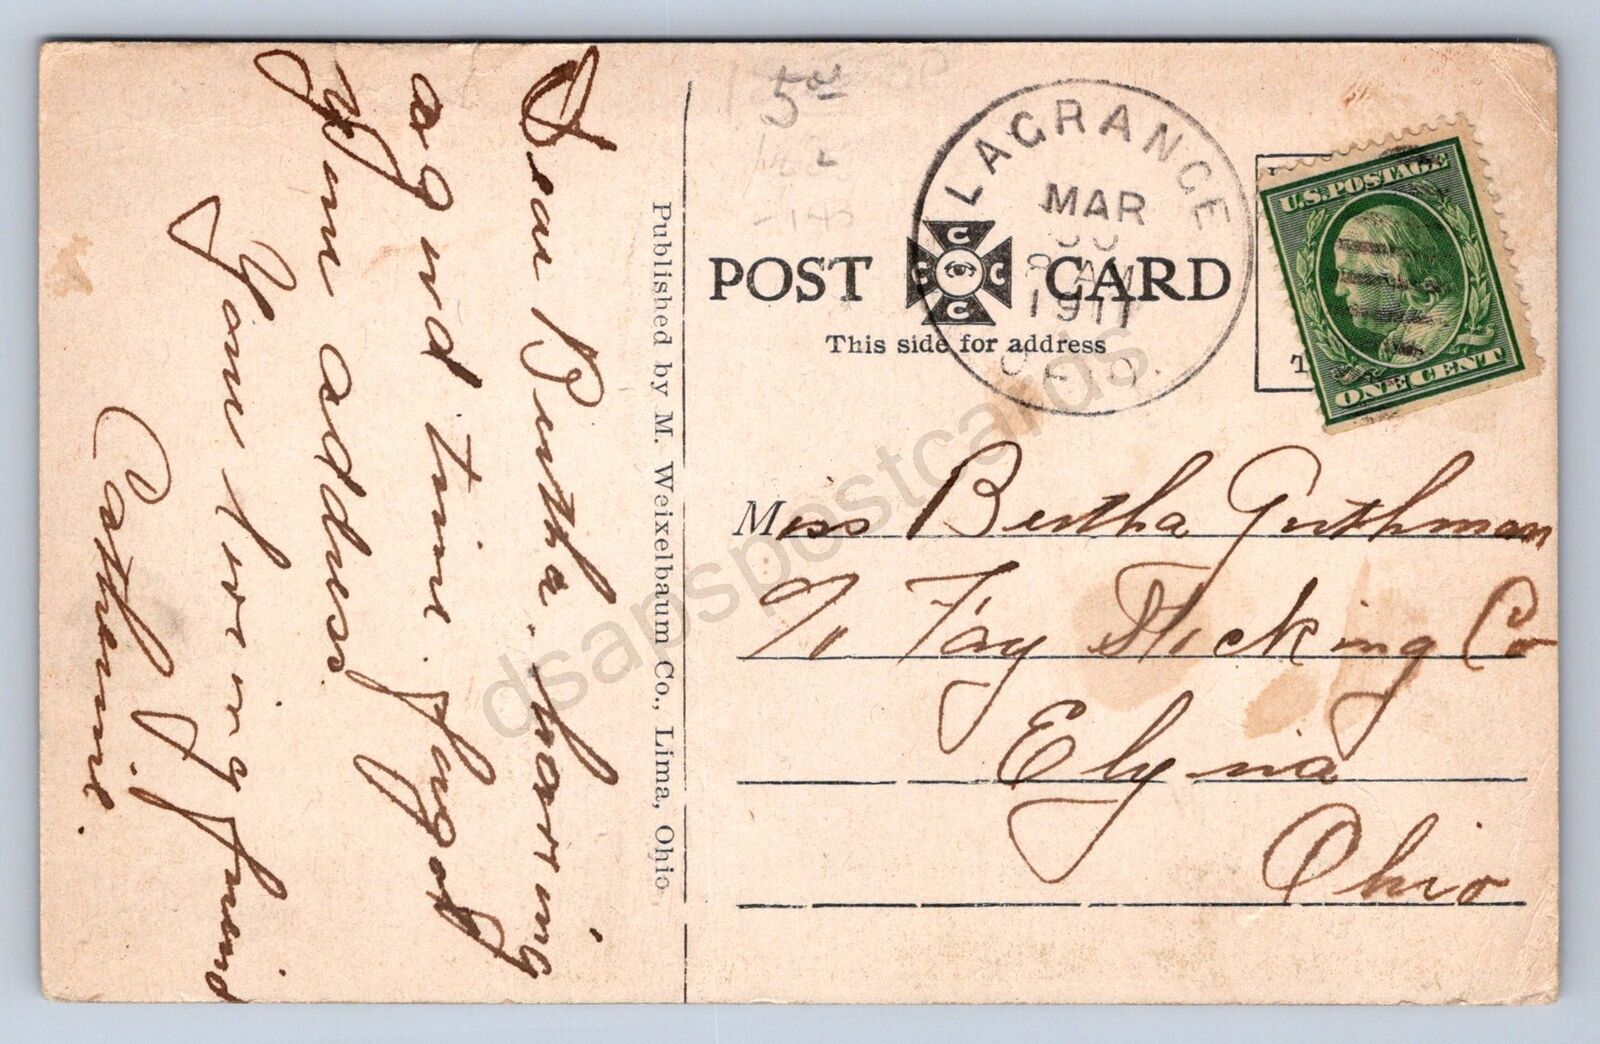 Dear Bertha. having
a good time. forgot
your address
Your loving freind
Catherine.
Published by M. Weixelbaum Co., Lima, Ohio
5
LAGRANGE
MAR
1911
OHIO.
U.S. POSTAGE
ONE CENT
C
C
C
C
POST CARD
This side for address
Miss Bertha Guthman
% Fay Stocking Co
Elyria
Ohio
dsapspostcards